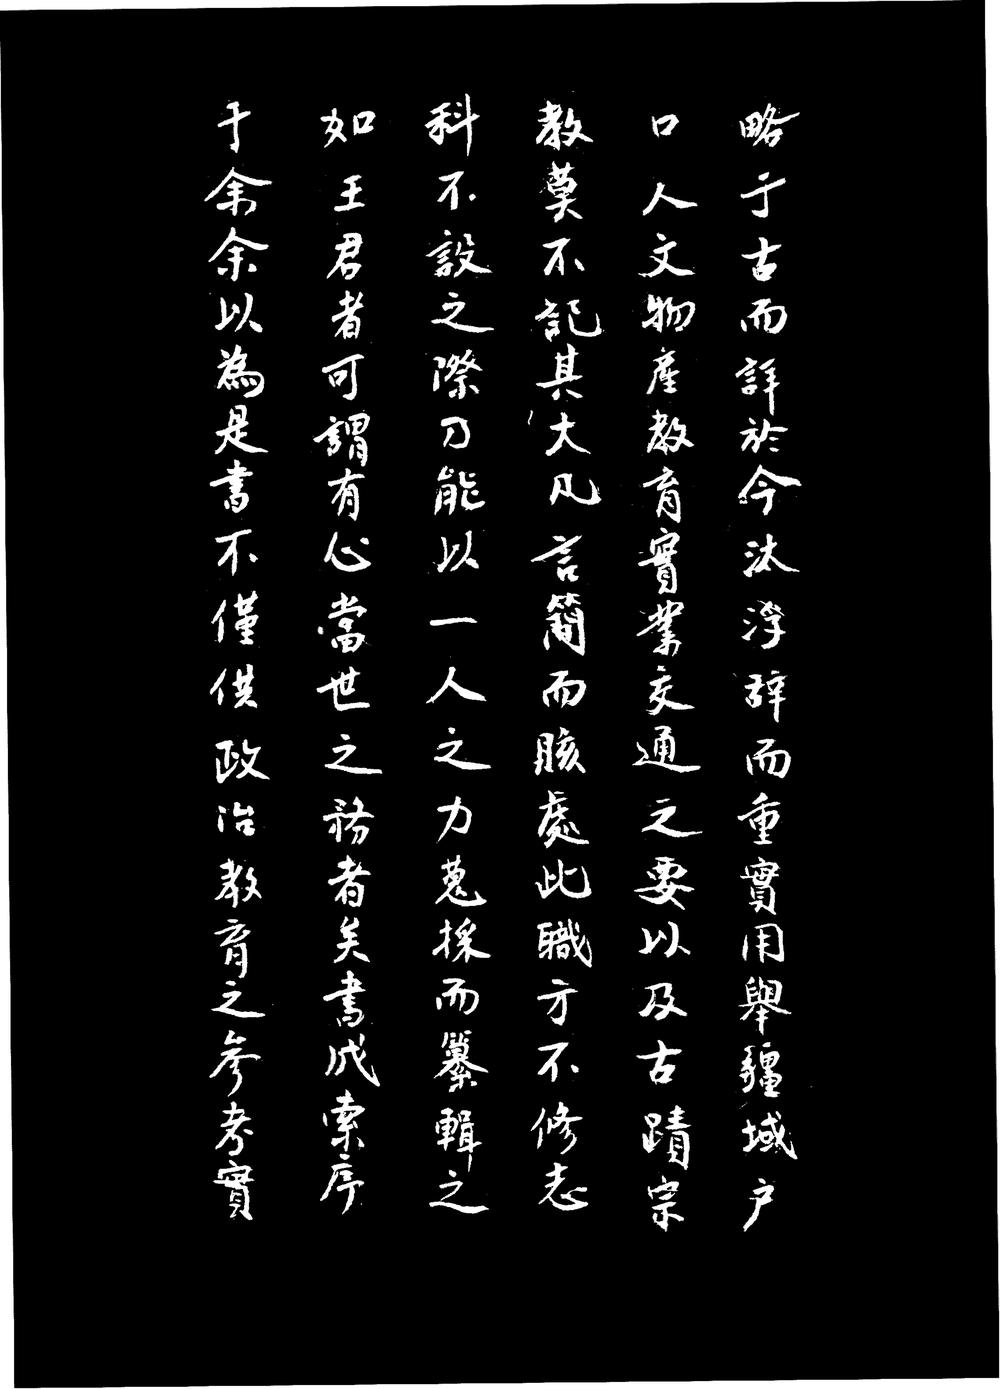 略于古而詳於今汰浮辭而重實用舉疆域户
口人文物產教育實業交通之要以及古蹟宗
教莫不記其大凡言簡而賅處此職方不修志
科不設之際乃能以一人之力蒐採而纂輯之
如王君者可謂有心當世之務者矣書成索序
于余余以為是書不僅供政治教育之參考實